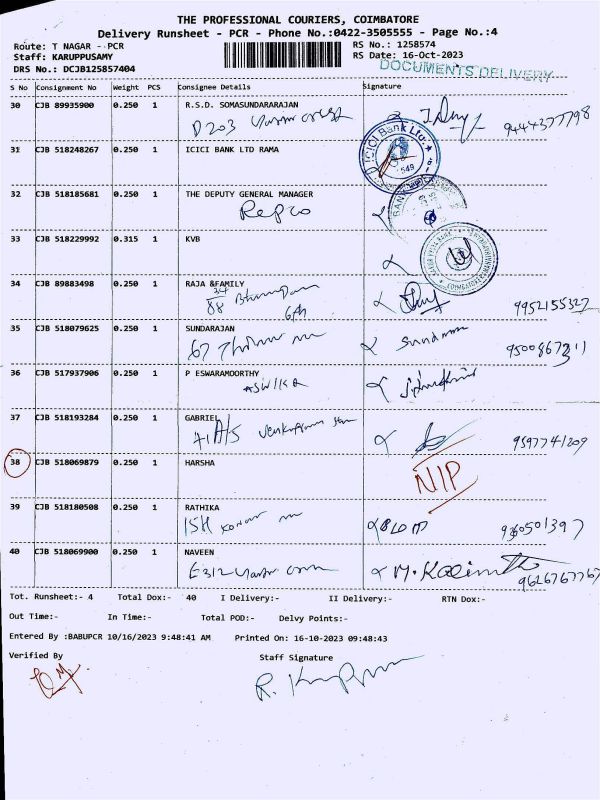 THE PROFESSIONAL COURIERS, COIMBATORE
Delivery Runsheet - PCR - Phone No.:0422-3505555 - Page No.:4
Route: T NAGAR - PCR
RS No.: 1258574
Staff: KARUPPUSAMY
RS Date: 16-Oct-2023
DRS No.: DCJB125857404
DOCUMENTS DELIVERY
S No Consignment No Weight PCS Consignee Details Signature
30 CJB 89935900 0.250 1 R.S.D. SOMASUNDARARAJAN
D203
9444377798
31 CJB 518248267 0.250 1 ICICI BANK LTD RAMA
ICICI Bank Ltd.
32 CJB 518185681 0.250 1 THE DEPUTY GENERAL MANAGER
Repco
BANK
33 CJB 518229992 0.315 1 KVB
COIMBATORE
34 CJB 89883498 0.250 1 RAJA &FAMILY
34/88
9952155327
35 CJB 518079625 0.250 1 SUNDARAJAN
67
36 CJB 517937906 0.250 1 P ESWARAMOORTHY
ASWIKA
37 CJB 518193284 0.250 1 GABRIEL
9597741209
38 CJB 518069879 0.250 1 HARSHA
NIP
39 CJB 518180508 0.250 1 RATHIKA
40 CJB 518069900 0.250 1 NAVEEN
E312
9626767767
Tot. Runsheet:- 4 Total Dox:- 40 I Delivery:- II Delivery:- RTN Dox:-
Out Time:- In Time:- Total POD:- Delvy Points:-
Entered By :BABUPCR 10/16/2023 9:48:41 AM Printed On: 16-10-2023 09:48:43
Verified By Staff Signature